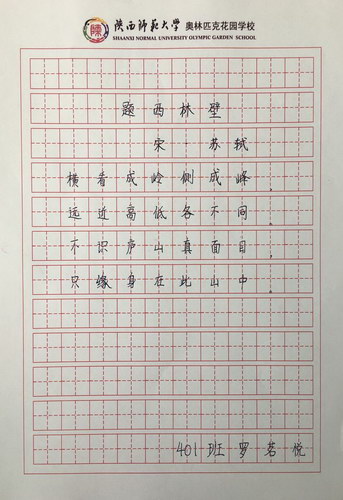 陕西师范大学 奥林匹克花园学校
SHAANXI NORMAL UNIVERSITY OLYMPIC GARDEN SCHOOL
题西林壁
宋·苏轼
横看成岭侧成峰，
远近高低各不同。
不识庐山真面目，
只缘身在此山中。
401班罗茗悦